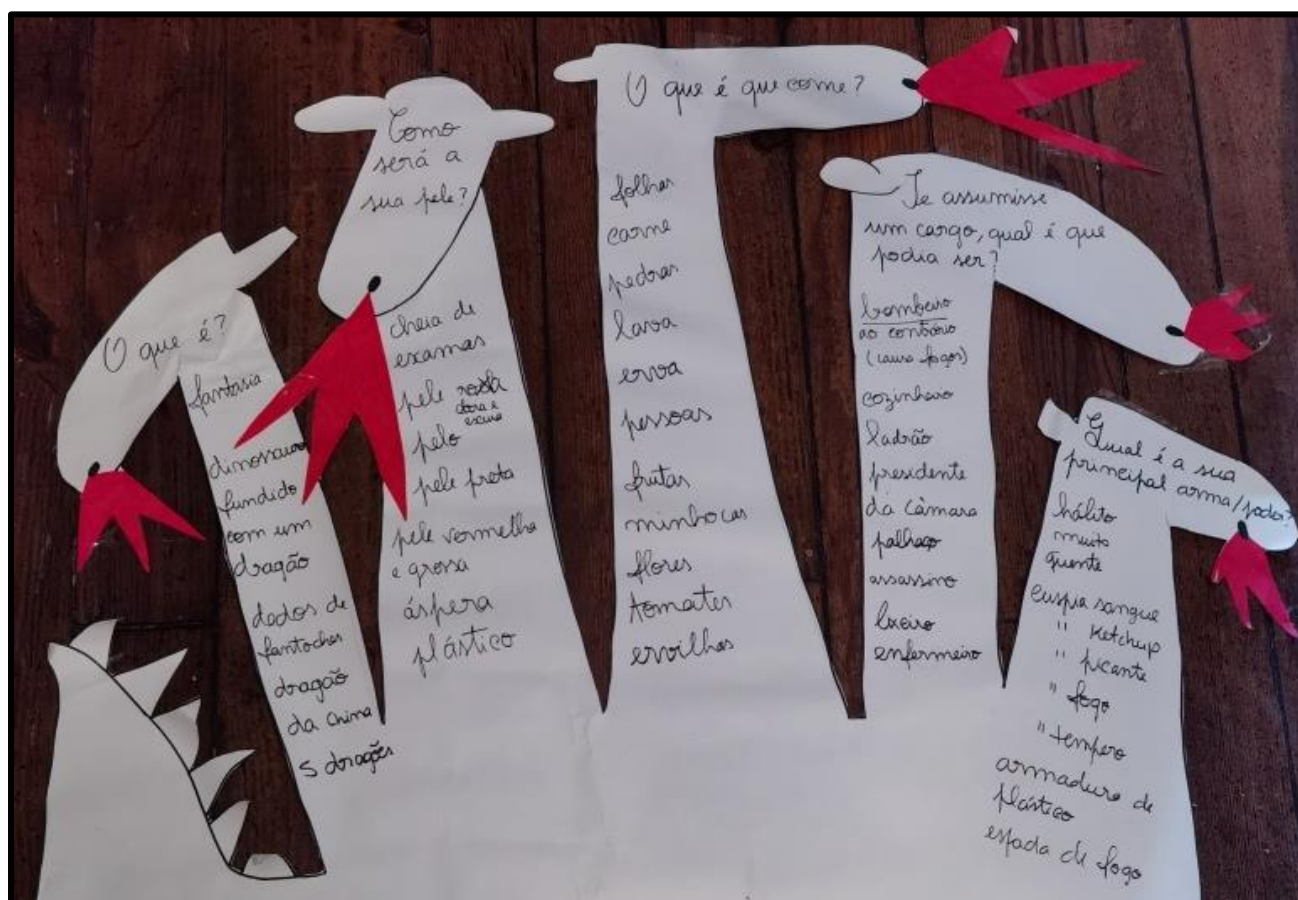 O que é?
fantasia
dinossauro
fundido
com um
dragão
dedos de
fantoches
dragão
da China
5 dragões
Como
será a
sua pele?
cheia de
examas
pele
clara e
escura
pelo
pele preta
pele vermelha
e grossa
áspera
plástico
O que é que come?
folhas
carne
pedras
lava
erva
pessoas
frutas
minhocas
flores
tomates
ervilhas
Se assumisse
um cargo, qual é que
podia ser?
bombeiro
ao contrário
(causa fogos)
cozinheiro
ladrão
presidente
da câmara
palhaço
assassino
lixeiro
enfermeiro
Qual é a sua
principal arma/poder?
hálito
muito
quente
cuspia sangue
" Ketchup
" picante
" fogo
" tempero
armadura de
plástico
espada de fogo